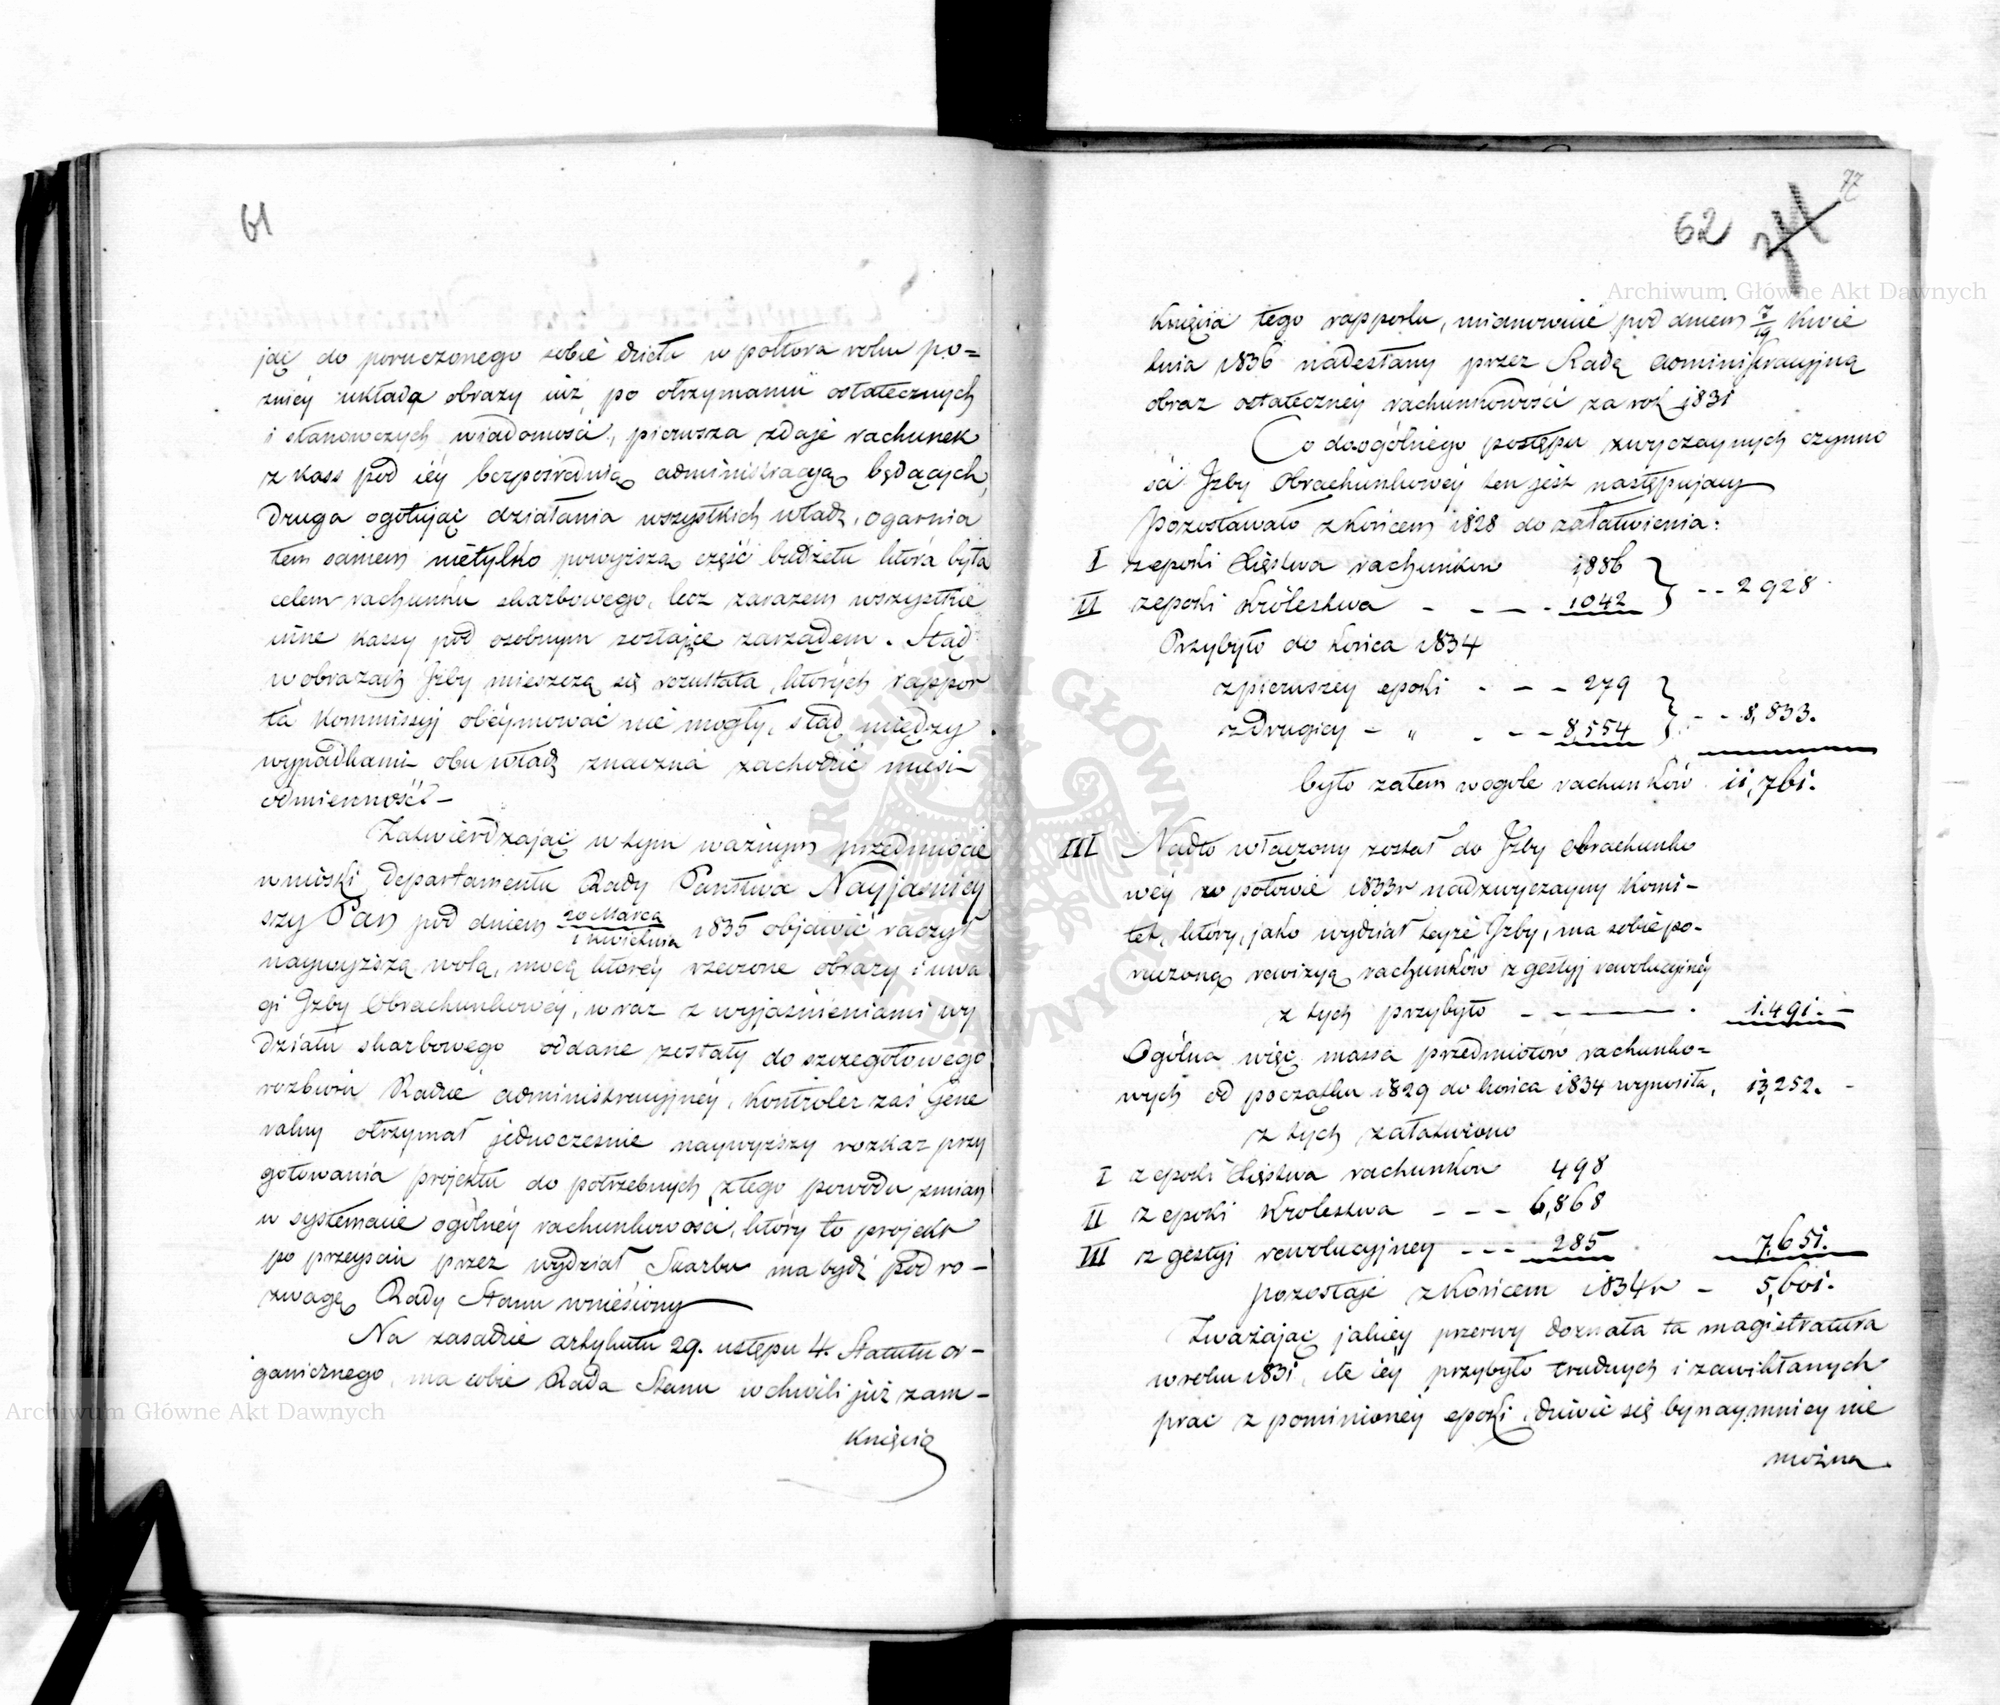 61
jąc do poruczonego sobie dzieła w półtora roku po=
zniéy układa obrazy iuż po otrzymaniu ostatecznych
i stanowczych wiadomości, pierwsza zdaje rachunek
z kass pod iéy bezpośrednią administracyą będących,
druga ogołując działania wszystkich władz, ogarnia
tem samem nietylko powyższą część budżetu która była
celem rachunku skarbowego, lecz zarazem wszystkie
inne kassy pod osobnym zostające zarządem. Stąd
w obrazach Izby mieszczą się rezultata, których rappor
ta Kommissyj obéymować nie mogły, stąd między
wypadkami obu władz znaczna zachodzić musi
odmienność -
Zatwierdzając w tym ważnym przedmiocie
wnioski Departamentu Rady Państwa Nayjaśniey
szy Pan pod dniem 20 Marca / 1 Kwietnia 1835 objawić raczył
naywyższą wolą, mocą któréy rzeczone obrazy i uwa
gi Izby Obrachunkowey, wraz z wyjaśnieniami wy
działu skarbowego oddane zostały do szczegołowego
rozbioru Radzie administracyjnéy, Kontroler zaś Gene
ralny otrzymał jednocześnie naywyższy rozkaz przy
gotowania projektu do potrzebnych z tego powodu zmian
w systemacie ogólnéy rachunkowości, który to projekt
po przeyściu przez wydział Skarbu ma bydź pod ro-
zwagę Rady Stanu wniesiony
Na zasadzie artykułu 29. ustępu 4. Statutu or-
ganicznego, ma sobie Rada Stanu w chwili już zam-
knięcia
77
62
Archiwum Główne Akt Dawnych
knięcia tego rapportu, mianowicie pod dniem 7/19 Kwie
tnia 1836 nadesłany przez Radę administracyjną
obraz ostatecznéy rachunkowości za rok 1831
Co do ogólniego postępu zwyczaynych czynno
ści Izby Obrachunkowéy ten jest następujący
Pozostawało z końcem 1828 do załatwienia:
I z epoki Xięstwa rachunków 1886
II z epoki Królestwa - - - - 1042 } - - 2928
Przybyło do końca 1834
z pierwszey epoki - - - 279
z drugiey - " - - - 8,554 } - - 8,833.
było zatem wogole rachunków 11,761.
III Nadto włączony został do Izby Obrachunko
wéy w połowie 1833r nadzwyczayny Komi-
tet, który, jako wydział teyże Izby, ma sobie po-
ruczoną rewizyą rachunków z gestyj rewolucyjnéy
z tych przybyło - - - - . 1.491. -
Ogólna więc massa przedmiotów rachunko=
wych od początku 1829 do końca 1834 wynosiła, 13,252. -
z tych załatwiono
I z epoki Xięstwa rachunków 498
II z epoki Krolestwa - - - 6,868
III z gestyj rewolucyjney - - - 285 7,651.
pozostaje z końcem 1834r - 5,601.
Zważając jakiéy przerwy doznała ta magistratura
w roku 1831, ile iéy przybyło trudnych i zawikłanych
prac z pominionéy epoki, dziwić się bynaymniey nie
można
Archiwum Główne Akt Dawnych
ARCHIWUM GŁÓWNE AKT DAWNYCH